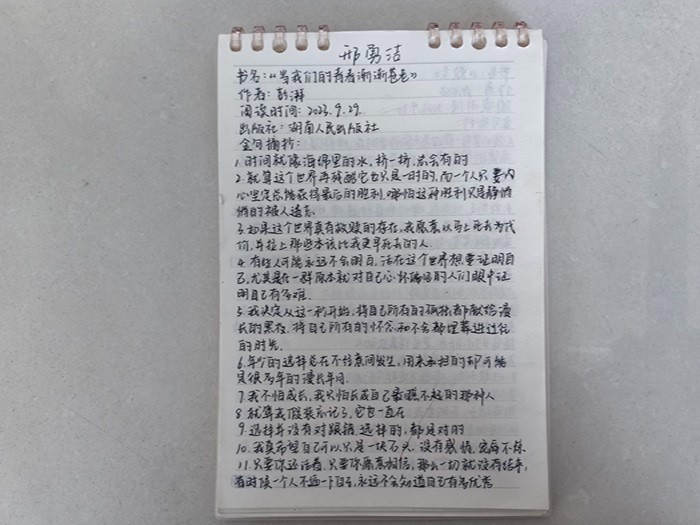 邢勇洁
书名:《当我们的青春渐渐苍老》
作者:彭湃
阅读时间:2023.9.29.
出版社:湖南人民出版社
金句摘抄:
1.时间就像海绵里的水,挤一挤,总会有的
2.就算这个世界再残酷它也只是一时的,而一个人只要内
心坚定总能获得最后的胜利,哪怕这种胜利只是静悄
悄的被人遗忘.
3.如果这个世界真有救赎的存在,我愿意以马上死去为代
价,并拉上那些本该比我更早死去的人.
4.有些人可能永远不会明白,活在这个世界想要证明自
己,尤其是在一群原本就对自己心怀的人们眼中证
明自己有多难.
5.我决定从这一秒开始,将自己所有的孤独都献给漫
长的黑夜,将自己所有的怀念和不舍都埋葬进过往
的时光.
6.年少的选择总在不经意间发生,用来承担的却可能
是很多年的漫长年月.
7.我不怕成长,我只怕长成自己最瞧不起的那种人
8.就算我假装忘记了,它也一直在
9.选择并没有对跟错,选择的,都是对的
10.我真希望自己可以只是一块石头,没有感情,宠辱不惊
11.只要你还活着,只要你愿意相信,那么一切就没有结束,
有时候一个人不逼一下自己,永远不会知道自己有多优秀